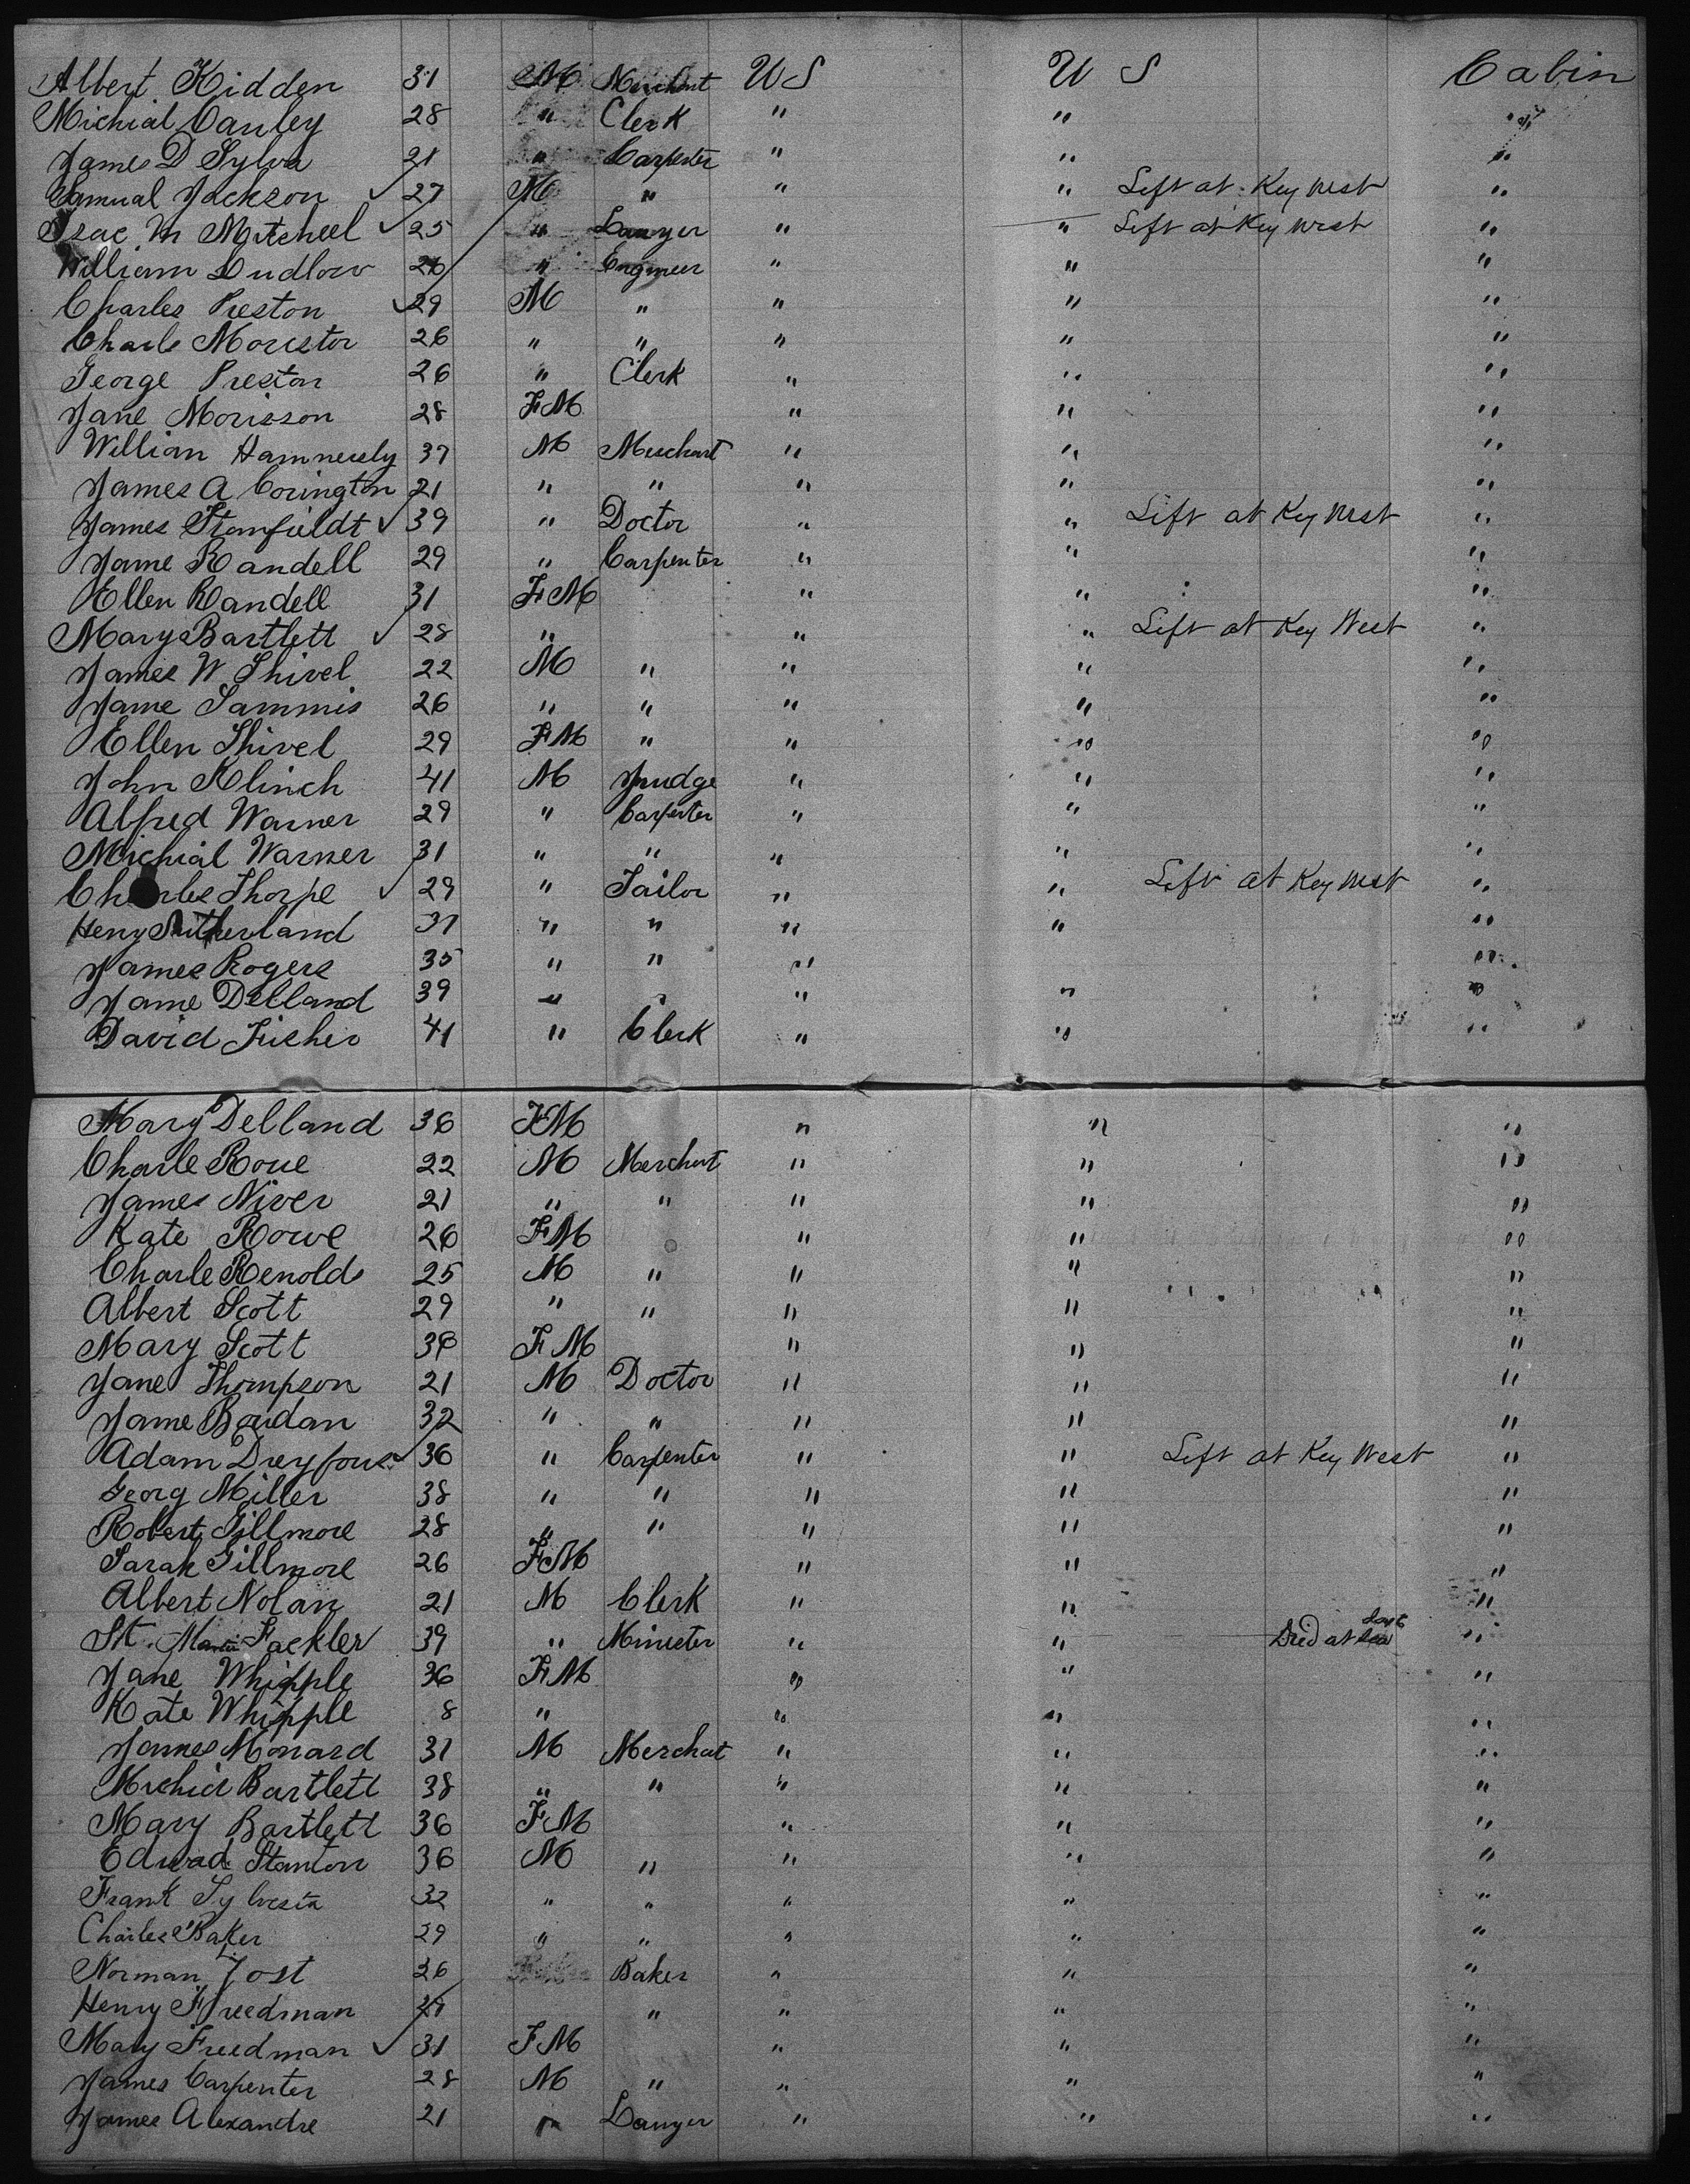 Albert Kidden 31 M Merchant US U S Cabin
Michial Cauley 28 " Clerk " " "
James D Sylva 21 " Carpenter " " "
Samual Jackson 27 M " " " Left at Key West "
Isac M Mitcheel 25 " Lawyer " " Left at Key West "
William Ludlow 26 " Engineer " " "
Charles Preston 29 M " " " "
Charls Morister 26 " " " " "
George Preston 26 " Clerk " " "
Jane Morisson 28 FM " " "
Willian Hamnersly 37 M Merchant " " "
James A Corington 21 " " " " "
James Stanfieldt 39 " Doctor " " Left at Key West "
Jame Randell 29 " Carpenter " " "
Ellen Randell 31 FM " " "
Mary Bartlett 28 " " " Left at Key West "
James W Shivel 22 M " " " "
Jame Sammis 26 " " " " "
Ellen Shivel 29 FM " " " "
John Klinch 41 M Judge " " "
Alfred Warner 29 " Carpenter " " "
Michial Warner 31 " " " " "
Charles Thorpe 29 " Tailor " " Left at Key West "
Heny Sutherland 31 " " " " "
James Rogers 35 " " " "
Jame Delland 39 " " " " "
David Fisher 41 " Clerk " " "
Mary Delland 36 FM " " "
Charle Roue 22 M Merchant " " "
James Niver 21 " " " " "
Kate Rowe 26 FM " " "
Charle Renolds 25 M " " " "
Albert Scott 29 " " " " "
Mary Scott FM " " "
Jane Thompson 21 M Doctor " " "
Jame Boudan 32 " " " " "
Adam Dreyfous 36 " Carpenter " " Left at Key West "
Georg Miller 38 " " " " "
Robert Gillmore 28 " " " " "
Sarah Gillmore 26 FM " " "
Albert Nolan 21 M Clerk " " "
St. Martin Fackler 39 " Minister " " Died at Sea "
Jane Whipple 36 FM " " "
Kate Whipple 8 " " " "
James Monard 31 M Merchat " " "
Michiel Bartlett 38 " " " " "
Mary Bartlett 36 FM " " "
Edwad Stanton 36 M " " " "
Frank Sylvesta 32 " " " " "
Charles Baker 29 " " " " "
Norman Yost 26 Baker " " "
Henry F Freedman " " " "
Mary Freedman 31 FM " " "
James Carpenter 28 M " " " "
James Alexandre 21 " Lawyer " " "